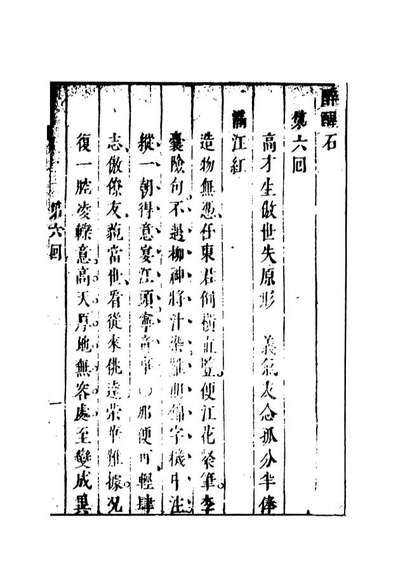 醉醒石
第六回
高才生傲世失原形　義氣友念孤分半俸
滿江紅
造物無憑任東君倒橫直豎便江花筆李
囊險句不遇柳神將汁染難期錦字機中注
縱一朝得意宴江頭寧奇事〇那便可輕肆
志傲僚友藐當世看從來佻達榮華難據況
復一腔凌轢意高天厚地無容處至變成異
第六回
一